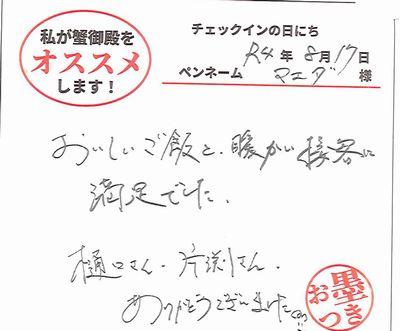 私が蟹御殿を
オススメ
します!
チェックインの日にち
R4年8月17日
ペンネーム マエダ 様
おいしいご飯と、暖かい接客に
満足でした。
樋口さん・片渕さん、
ありがとうございました
墨
おつき